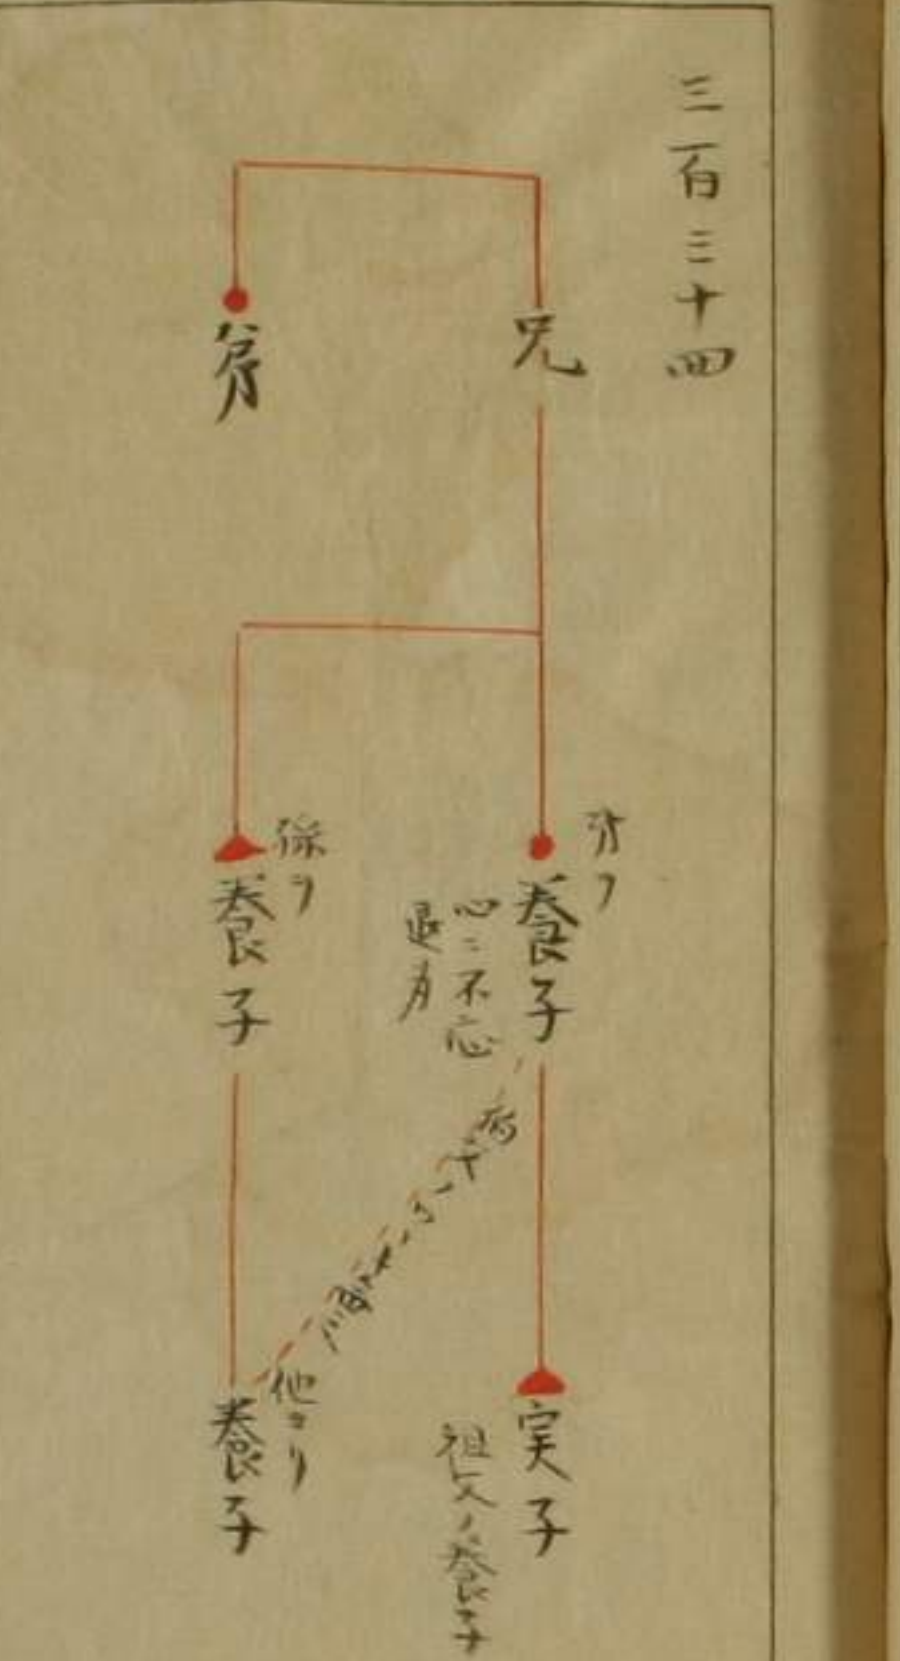 三百三十四
兄
弟
弟ヲ
養子
心ニ不応
退身
孫ヲ
養子
実子
祖父ノ養子
他ヨリ
養子